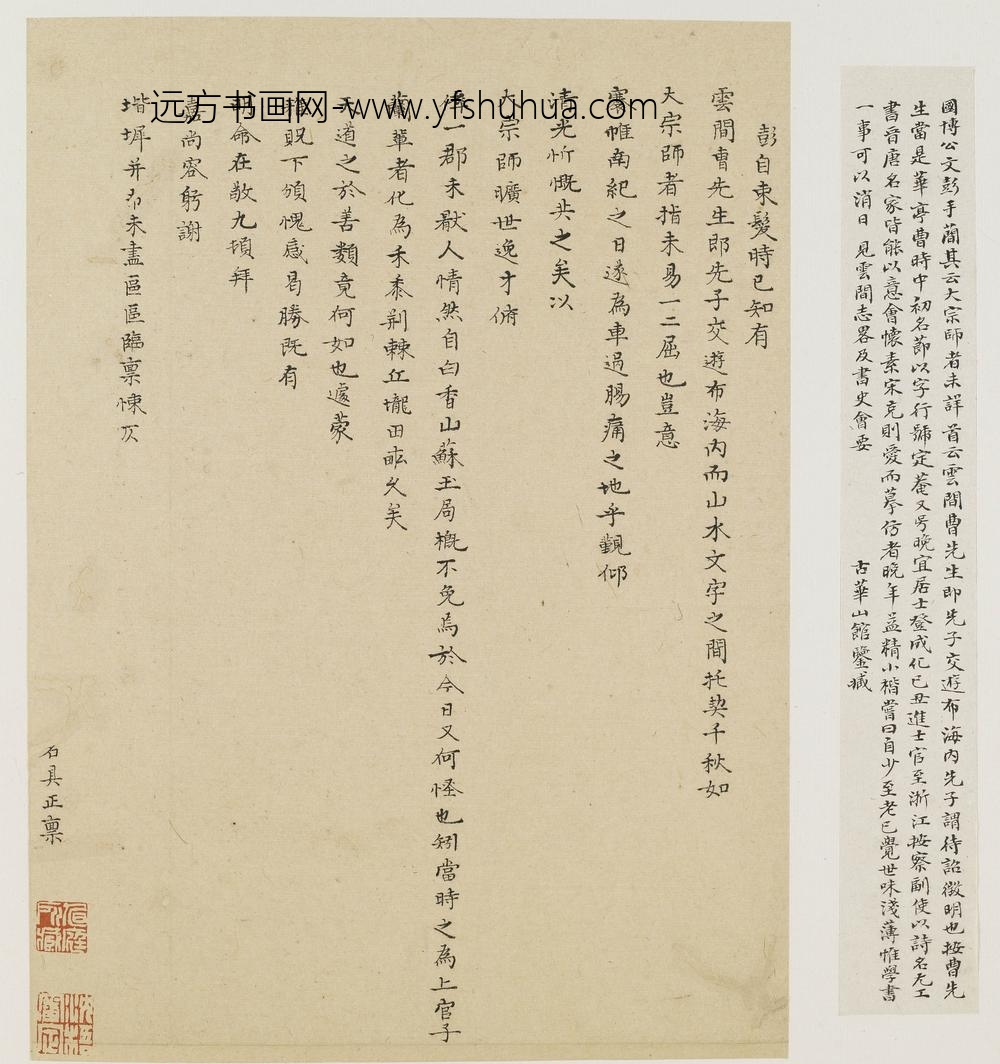 國博公文彭手蕳其云大宗師者未詳首云雲間曹先生即先子交遊布海内先子謂待詔徵明也按曹先
生當是華亭曹時中初名節以字行號定菴又号晚宜居士登成化己丑進士官至浙江按察副使以詩名尤工
書晉唐名家皆能以意會懷素宋克則愛而摹仿者晚年益精小楷嘗曰自少至老已覺世味淺薄惟學書
一事可以消日 見雲間志畧及書史會要 古華山館鑒臧
彭自束髮時已知有
雲間曺先生即先子交遊布海内而山水文字之間托契千秋如
大宗師者指未易一二屈也豈意
褰帷南紀之日遂為車過腸痛之地乎覯仰
清光忻慨共之矣以
大宗師曠世逸才俯
一郡未厭人情然自白香山蘇玉局概不免焉於今日又何怪也矧當時之為上官子
蘭輩者化為禾黍荆棘丘壠田畝久矣
天道之於善類竟何如也遽蒙
貺下頒愧感曷勝既有
命在敬九頓拜
嘉尚容躬謝
堦墀并布未盡區區臨禀悚仄
石具正禀
远方书画网-www.yfshuhua.com